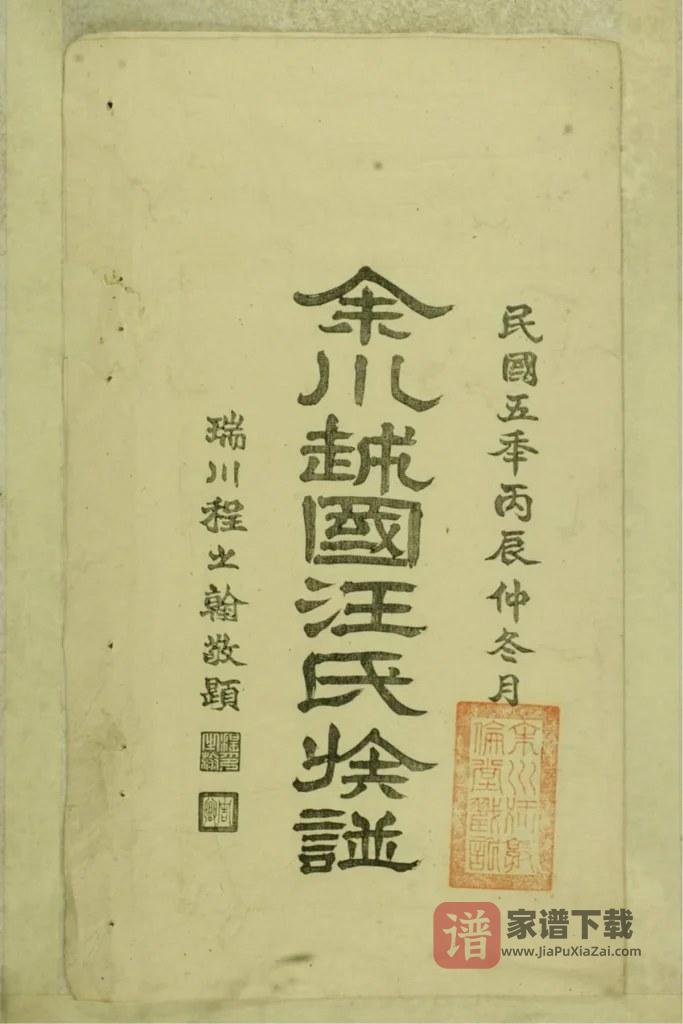 民國五秊丙辰仲冬月
余川越國汪氏族譜
瑞川程之翰敬題
余川汪敘
倫堂戳記
谱 家谱下载
www.JiaPuXiaZai.com